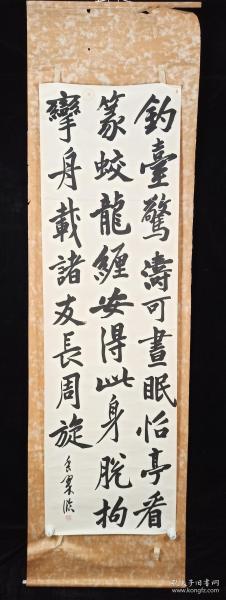 釣臺驚濤可晝眠怡亭看
篆蛟龍纏安得此身脫拘
攣身載諸友長周旋
孔夫子旧书网
www.kongfz.com